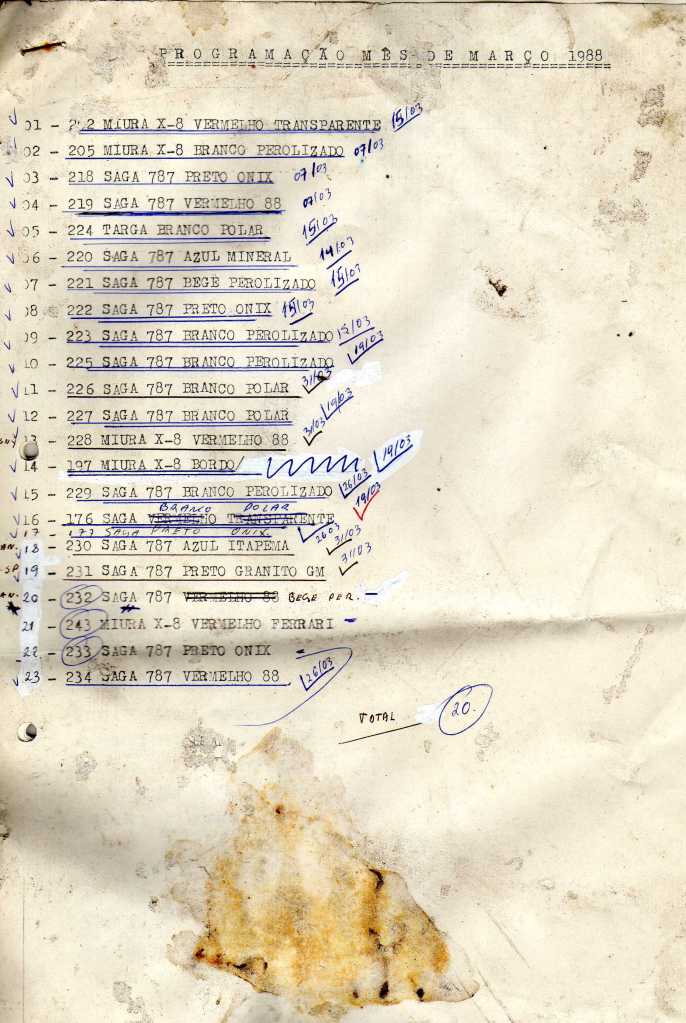 PROGRAMAÇÃO MÊS DE MARÇO 1988
01 - 202 MIURA X-8 VERMELHO TRANSPARENTE 15/03
02 - 205 MIURA X-8 BRANCO PEROLIZADO 07/03
03 - 218 SAGA 787 PRETO ONIX 07/03
04 - 219 SAGA 787 VERMELHO 88 07/03
05 - 224 TARGA BRANCO POLAR 15/03
06 - 220 SAGA 787 AZUL MINERAL 14/03
07 - 221 SAGA 787 BEGE PEROLIZADO 15/03
08 - 222 SAGA 787 PRETO ONIX 15/03
09 - 223 SAGA 787 BRANCO PEROLIZADO 15/03
10 - 225 SAGA 787 BRANCO PEROLIZADO 19/03
11 - 226 SAGA 787 BRANCO POLAR 31/03
12 - 227 SAGA 787 BRANCO POLAR 19/03
13 - 228 MIURA X-8 VERMELHO 88 31/03
14 - 197 MIURA X-8 BORDO/ 19/03
15 - 229 SAGA 787 BRANCO PEROLIZADO 26/03
BRANCO POLAR
16 - 176 SAGA VERMELHO TRANSPARENTE 19/03
17 - 177 SAGA PRETO ONIX. 26 03
AN. 18 - 230 SAGA 787 AZUL ITAPEMA 31/03
SP 19 - 231 SAGA 787 PRETO GRANITO GM 31/03
AN. 20 - 232 SAGA 787 VERMELHO 88 BEGE PER. -
21 - 243 MIURA X-8 VERMELHO FERRARI -
22 - 233 SAGA 787 PRETO ONIX -
23 - 234 SAGA 787 VERMELHO 88 26/03
TOTAL 20.